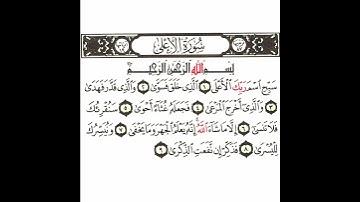 سُورَةُ الأَعْلَى
بِسْمِ اللَّهِ الرَّحْمَٰنِ الرَّحِيمِ
سَبِّحِ اسْمَ رَبِّكَ الْأَعْلَى ١ الَّذِي خَلَقَ فَسَوَّىٰ ٢ وَالَّذِي قَدَّرَ فَهَدَىٰ
٣ وَالَّذِي أَخْرَجَ الْمَرْعَىٰ ٤ فَجَعَلَهُ غُثَاءً أَحْوَىٰ ٥ سَنُقْرِئُكَ
فَلَا تَنسَىٰ ٦ إِلَّا مَا شَاءَ اللَّهُ إِنَّهُ يَعْلَمُ الْجَهْرَ وَمَا يَخْفَىٰ ٧ وَنُيَسِّرُكَ
لِلْيُسْرَىٰ ٨ فَذَكِّرْ إِن نَّفَعَتِ الذِّكْرَىٰ ٩